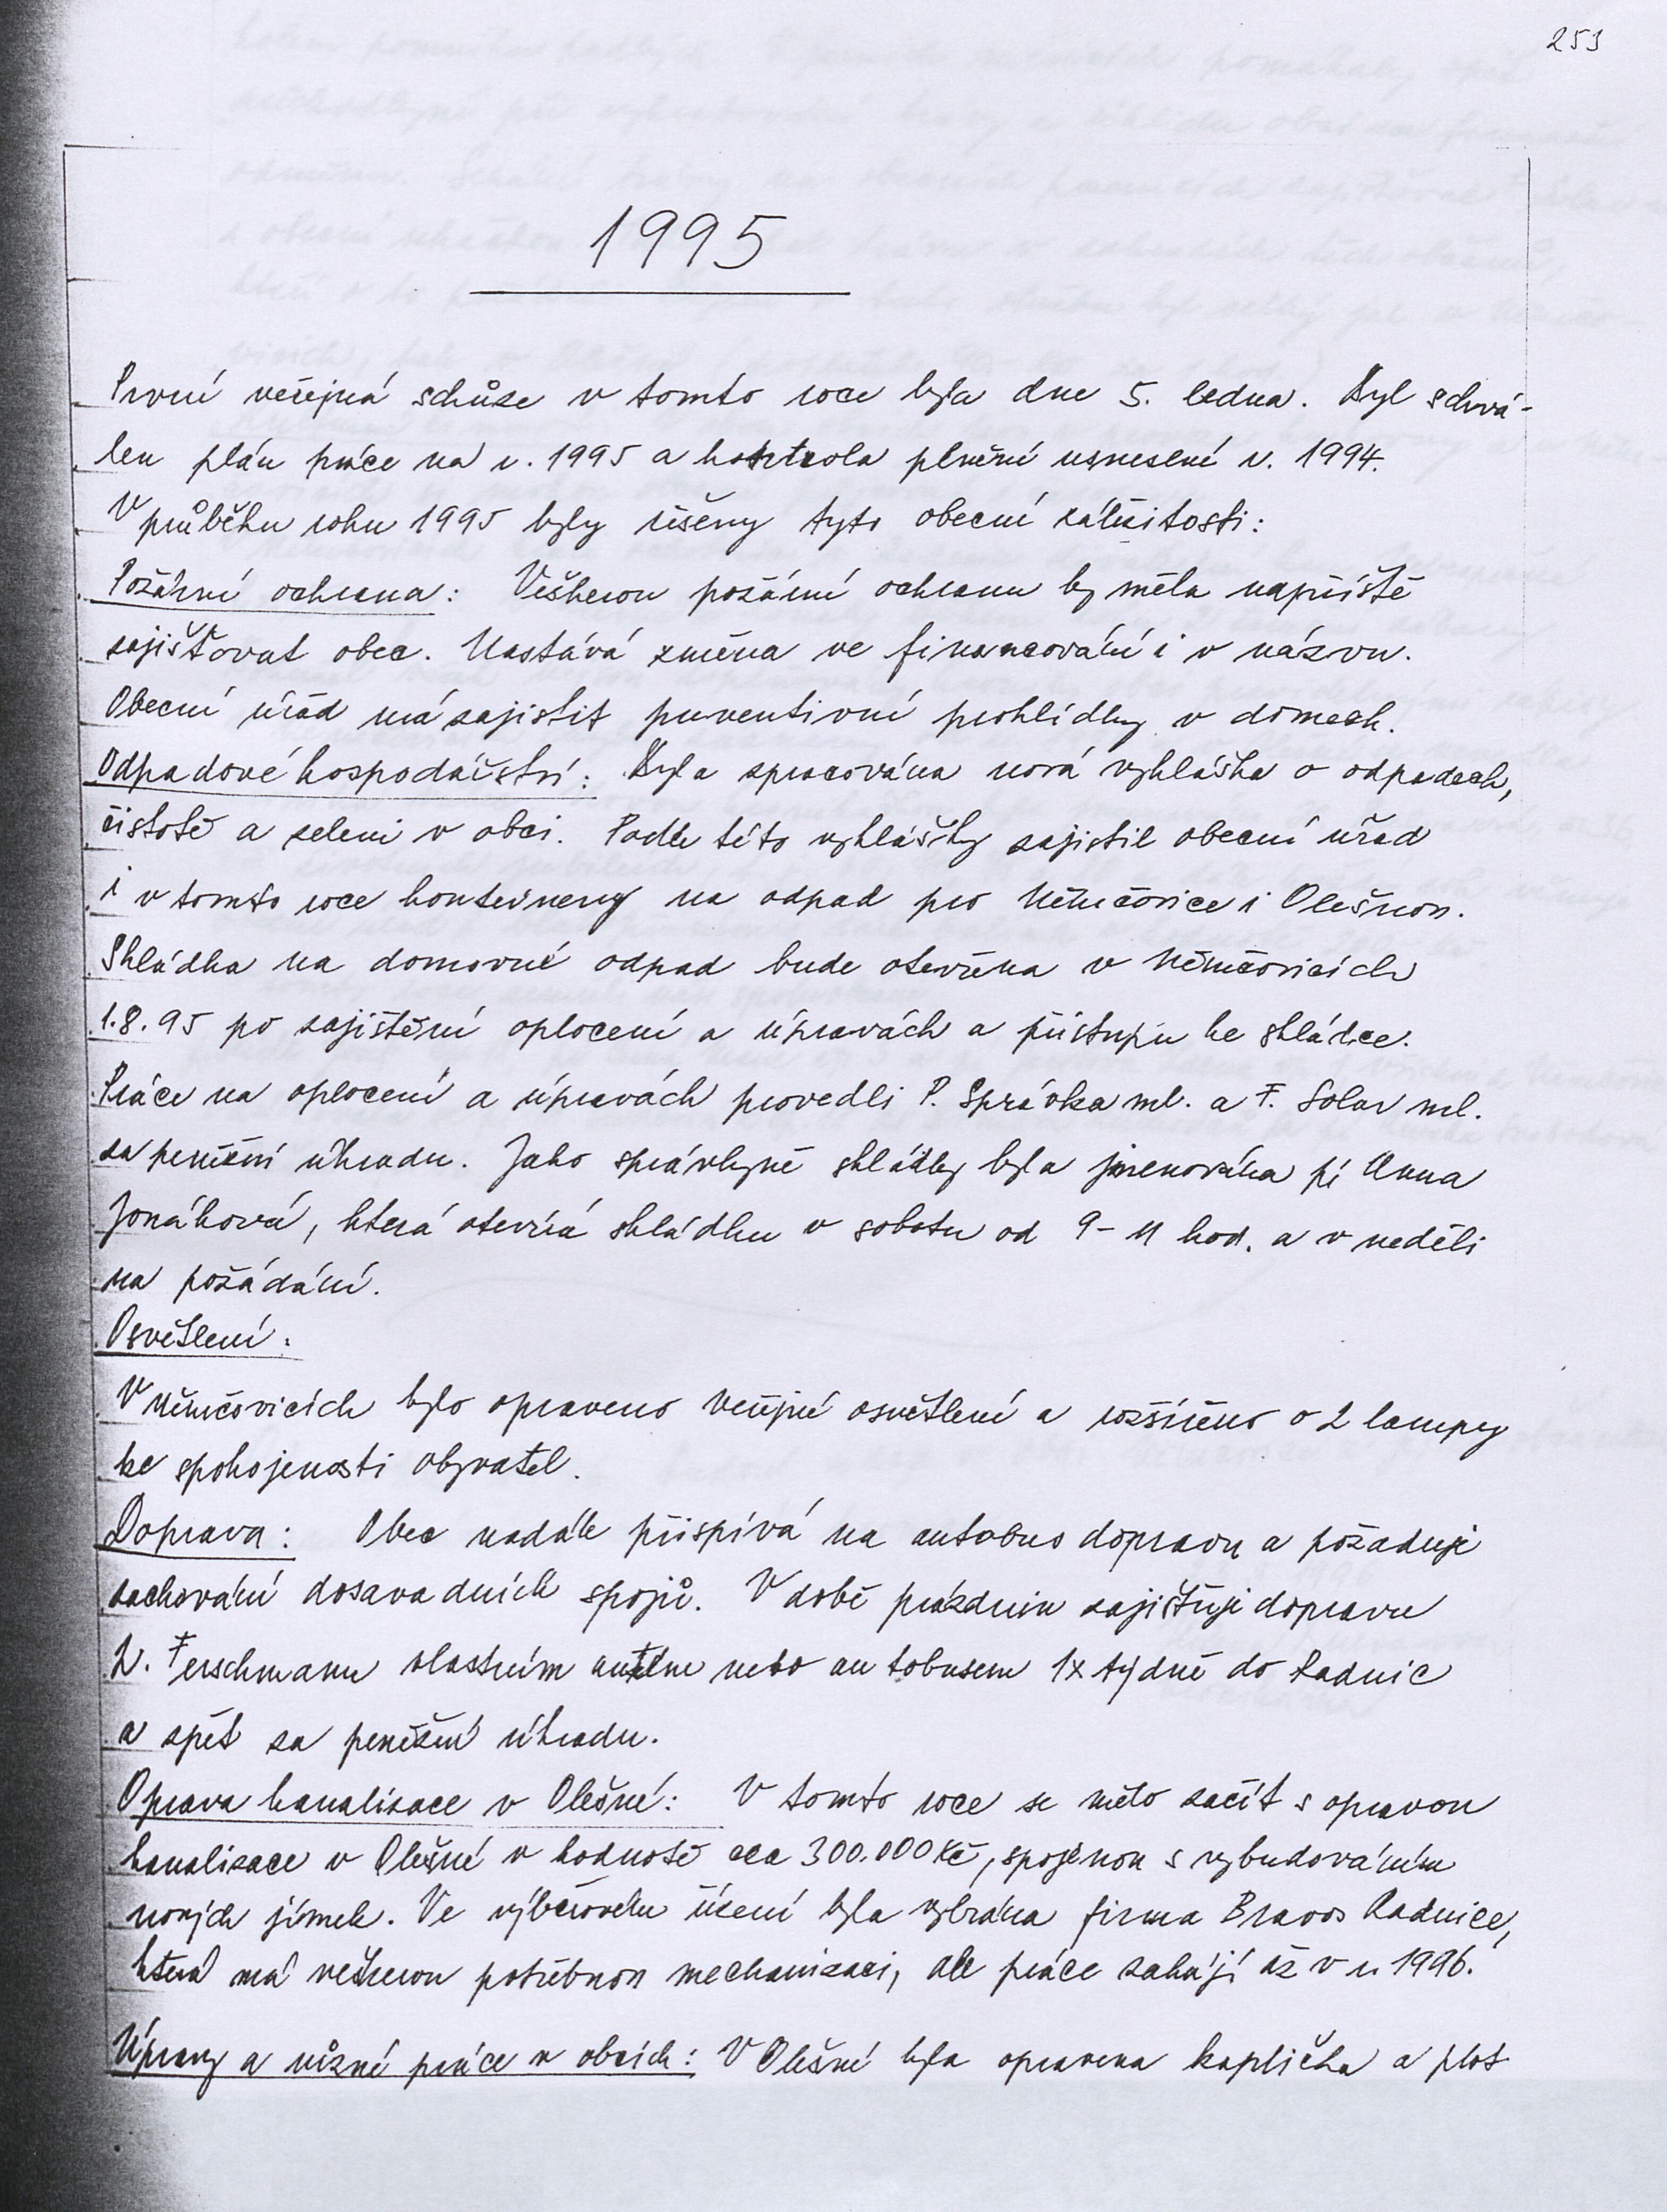 253
1995
První veřejná schůze v tomto roce byla dne 5. ledna. Byl schvá-
len plán práce na r. 1995 a kontrola plnění usnesení r. 1994.
V průběhu rohu 1995 byly řešeny tyto obecní záležitosti:
Požární ochrana: Veškerou požární ochranu by měla napříště
zajišťovat obec. Nastává změna ve financování i v názvu.
Obecní úřad má zajistit preventivní prohlídky v domech.
Odpadové hospodářství: Byla zpracována nová vyhláška o odpadech,
čistotě a zeleni v obci. Podle této vyhlášky zajistil obecní úřad
i v tomto roce kontejnery na odpad pro Němčovice i Olešnou.
Skládka na domovní odpad bude otevřena v Němčovicích
1.8.95 po zajištění oplocení a úpravách a přístupu ke skládce.
Práce na oplocení a úpravách provedli P. Správka ml. a F. Solar ml.
za peněžní úhradu. Jako správkyně skládky byla jmenována pí Anna
Jonáková, která otevírá skládku v sobotu od 9-11 hod. a v neděli
na požádání.
Osvětlení:
V Němčovicích bylo opraveno veřejné osvětlení a rozšířeno o 2 lampy
ke spokojenosti obyvatel.
Doprava: Obec nadále přispívá na autobus dopravu a požaduje
zachování dosavadních spojů. V době prázdnin zajišťuje dopravu
L. Ferschmann vlastním autem nebo autobusem 1x týdně do Radnic
a zpět za peněžní úhradu.
Oprava kanalizace v Olešné: V tomto roce se mělo začít s opravou
kanalizace v Olešné v hodnotě cca 300.000 Kč, spojenou s vybudováním
nových jímek. Ve výběrovém řízení byla vybrána firma Bravos Radnice,
která má veškerou potřebnou mechanizaci, ale práce zahájí až v r. 1996.
Úpravy a různé práce v obcích: V Olešné byla opravena kaplička a plot